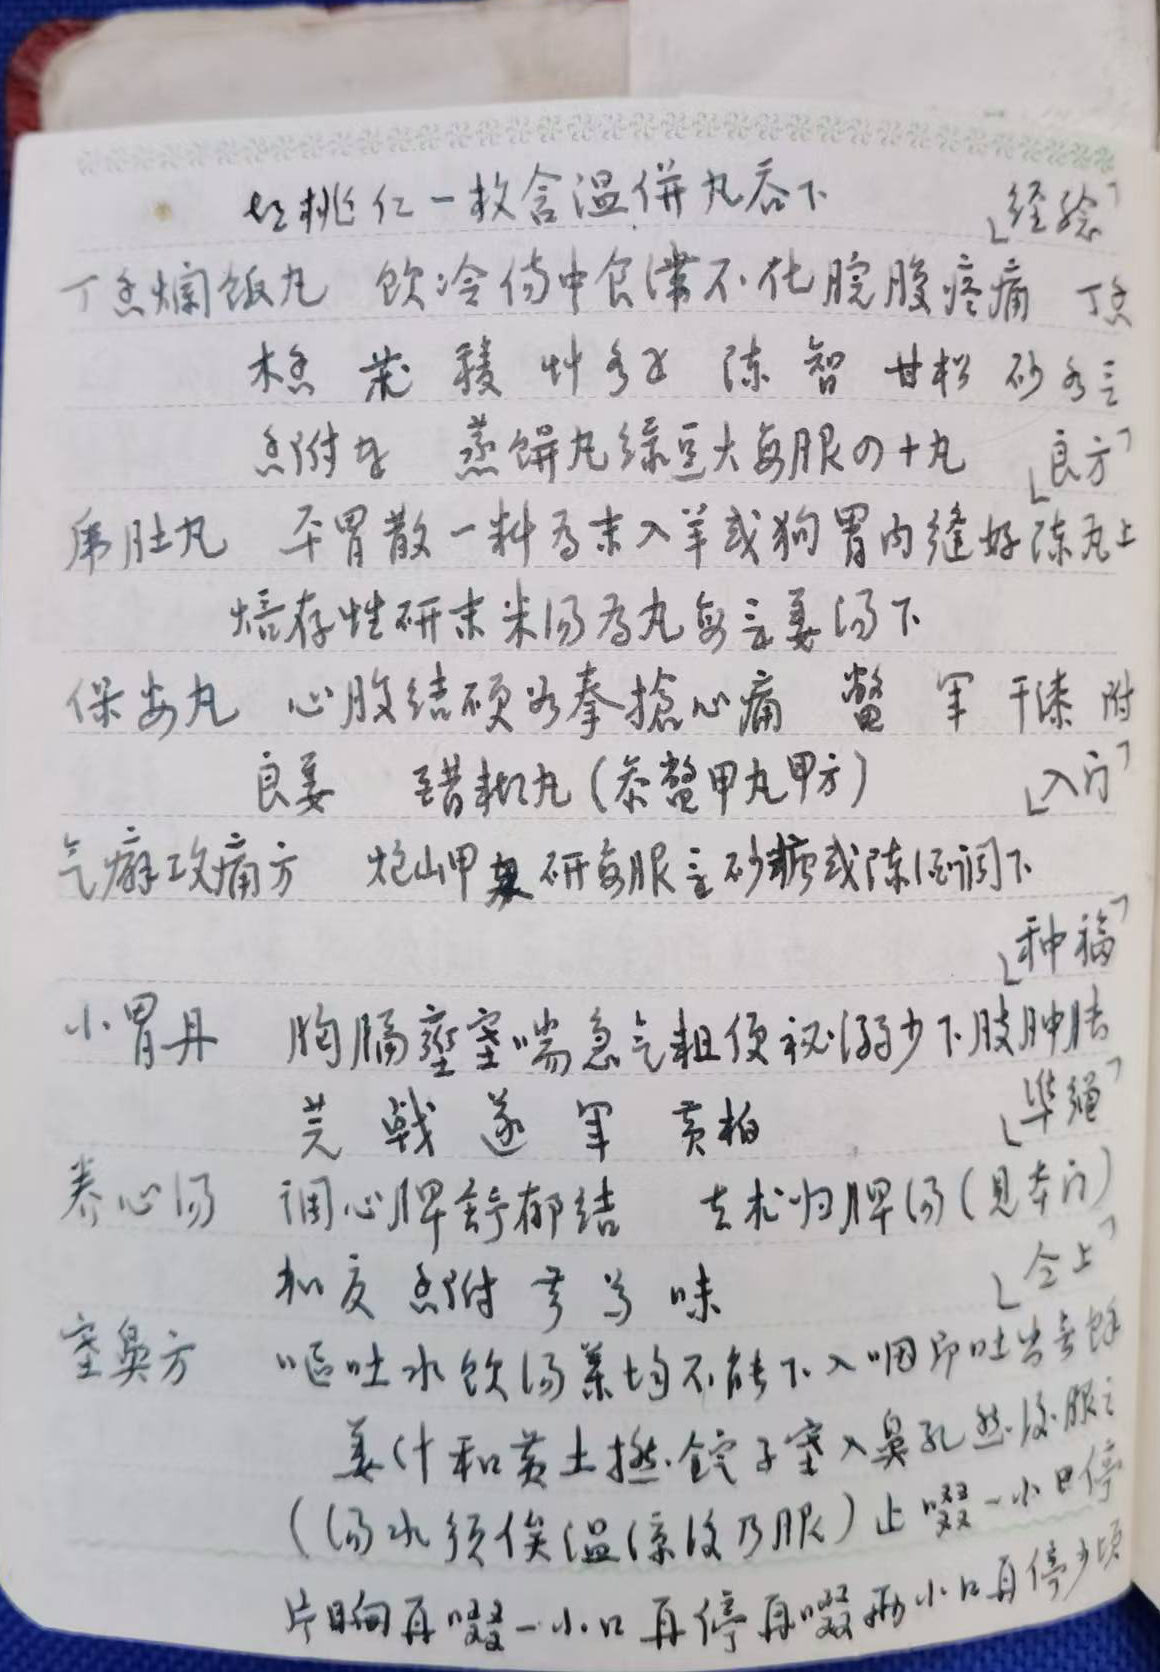 胡桃仁一枚含温併丸吞下 「经验」
丁香烂饭丸 饮冷伤中食滞不化脘腹疼痛 丁香
木香 莪 稜 艸 陈 智 甘松 砂各
香附 蒸饼丸绿豆大每服の十丸 「良方」
肚丸 平胃散一料为末入羊或狗胃内缝好陈瓦上
焙存性研末米汤为丸每三姜汤下
保安丸 心腹结硬如拳抢心痛 鳖 军 干漆 附
良姜 醋糊丸(参鳖甲丸甲方) 「入门」
气癖攻痛方 炮山甲 研每服 砂糖或陈酒调下
「种福」
小胃丹 胸膈壅塞喘急气粗便秘溺少下肢肿胀
芫 戟 遂 军 黄柏 「准绳」
养心汤 调心脾舒郁结 去术归脾汤(见本门)
和夏 香附 芎 为 味 「仝上」
塞鼻方 呕吐水饮汤药均不能下入咽即吐出
姜汁和黄土搓锭子塞入鼻孔然后服之
(汤水须俟温凉后乃服)止啜一小口停
片晌再啜一小口再停再啜两小口再停少顷